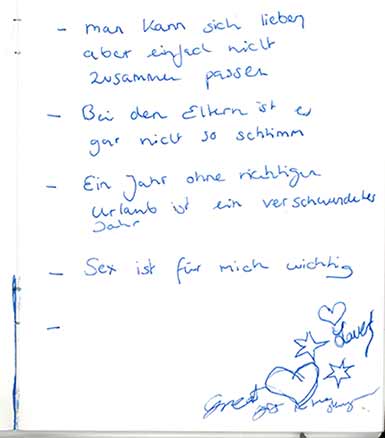 - man kann sich lieben
aber einfach nicht
zusammen passen
- Bei den Eltern ist es
gar nicht so schlimm
- Ein Jahr ohne richtigen
Urlaub ist ein verschwendetes
Jahr
- Sex ist für mich wichtig
-